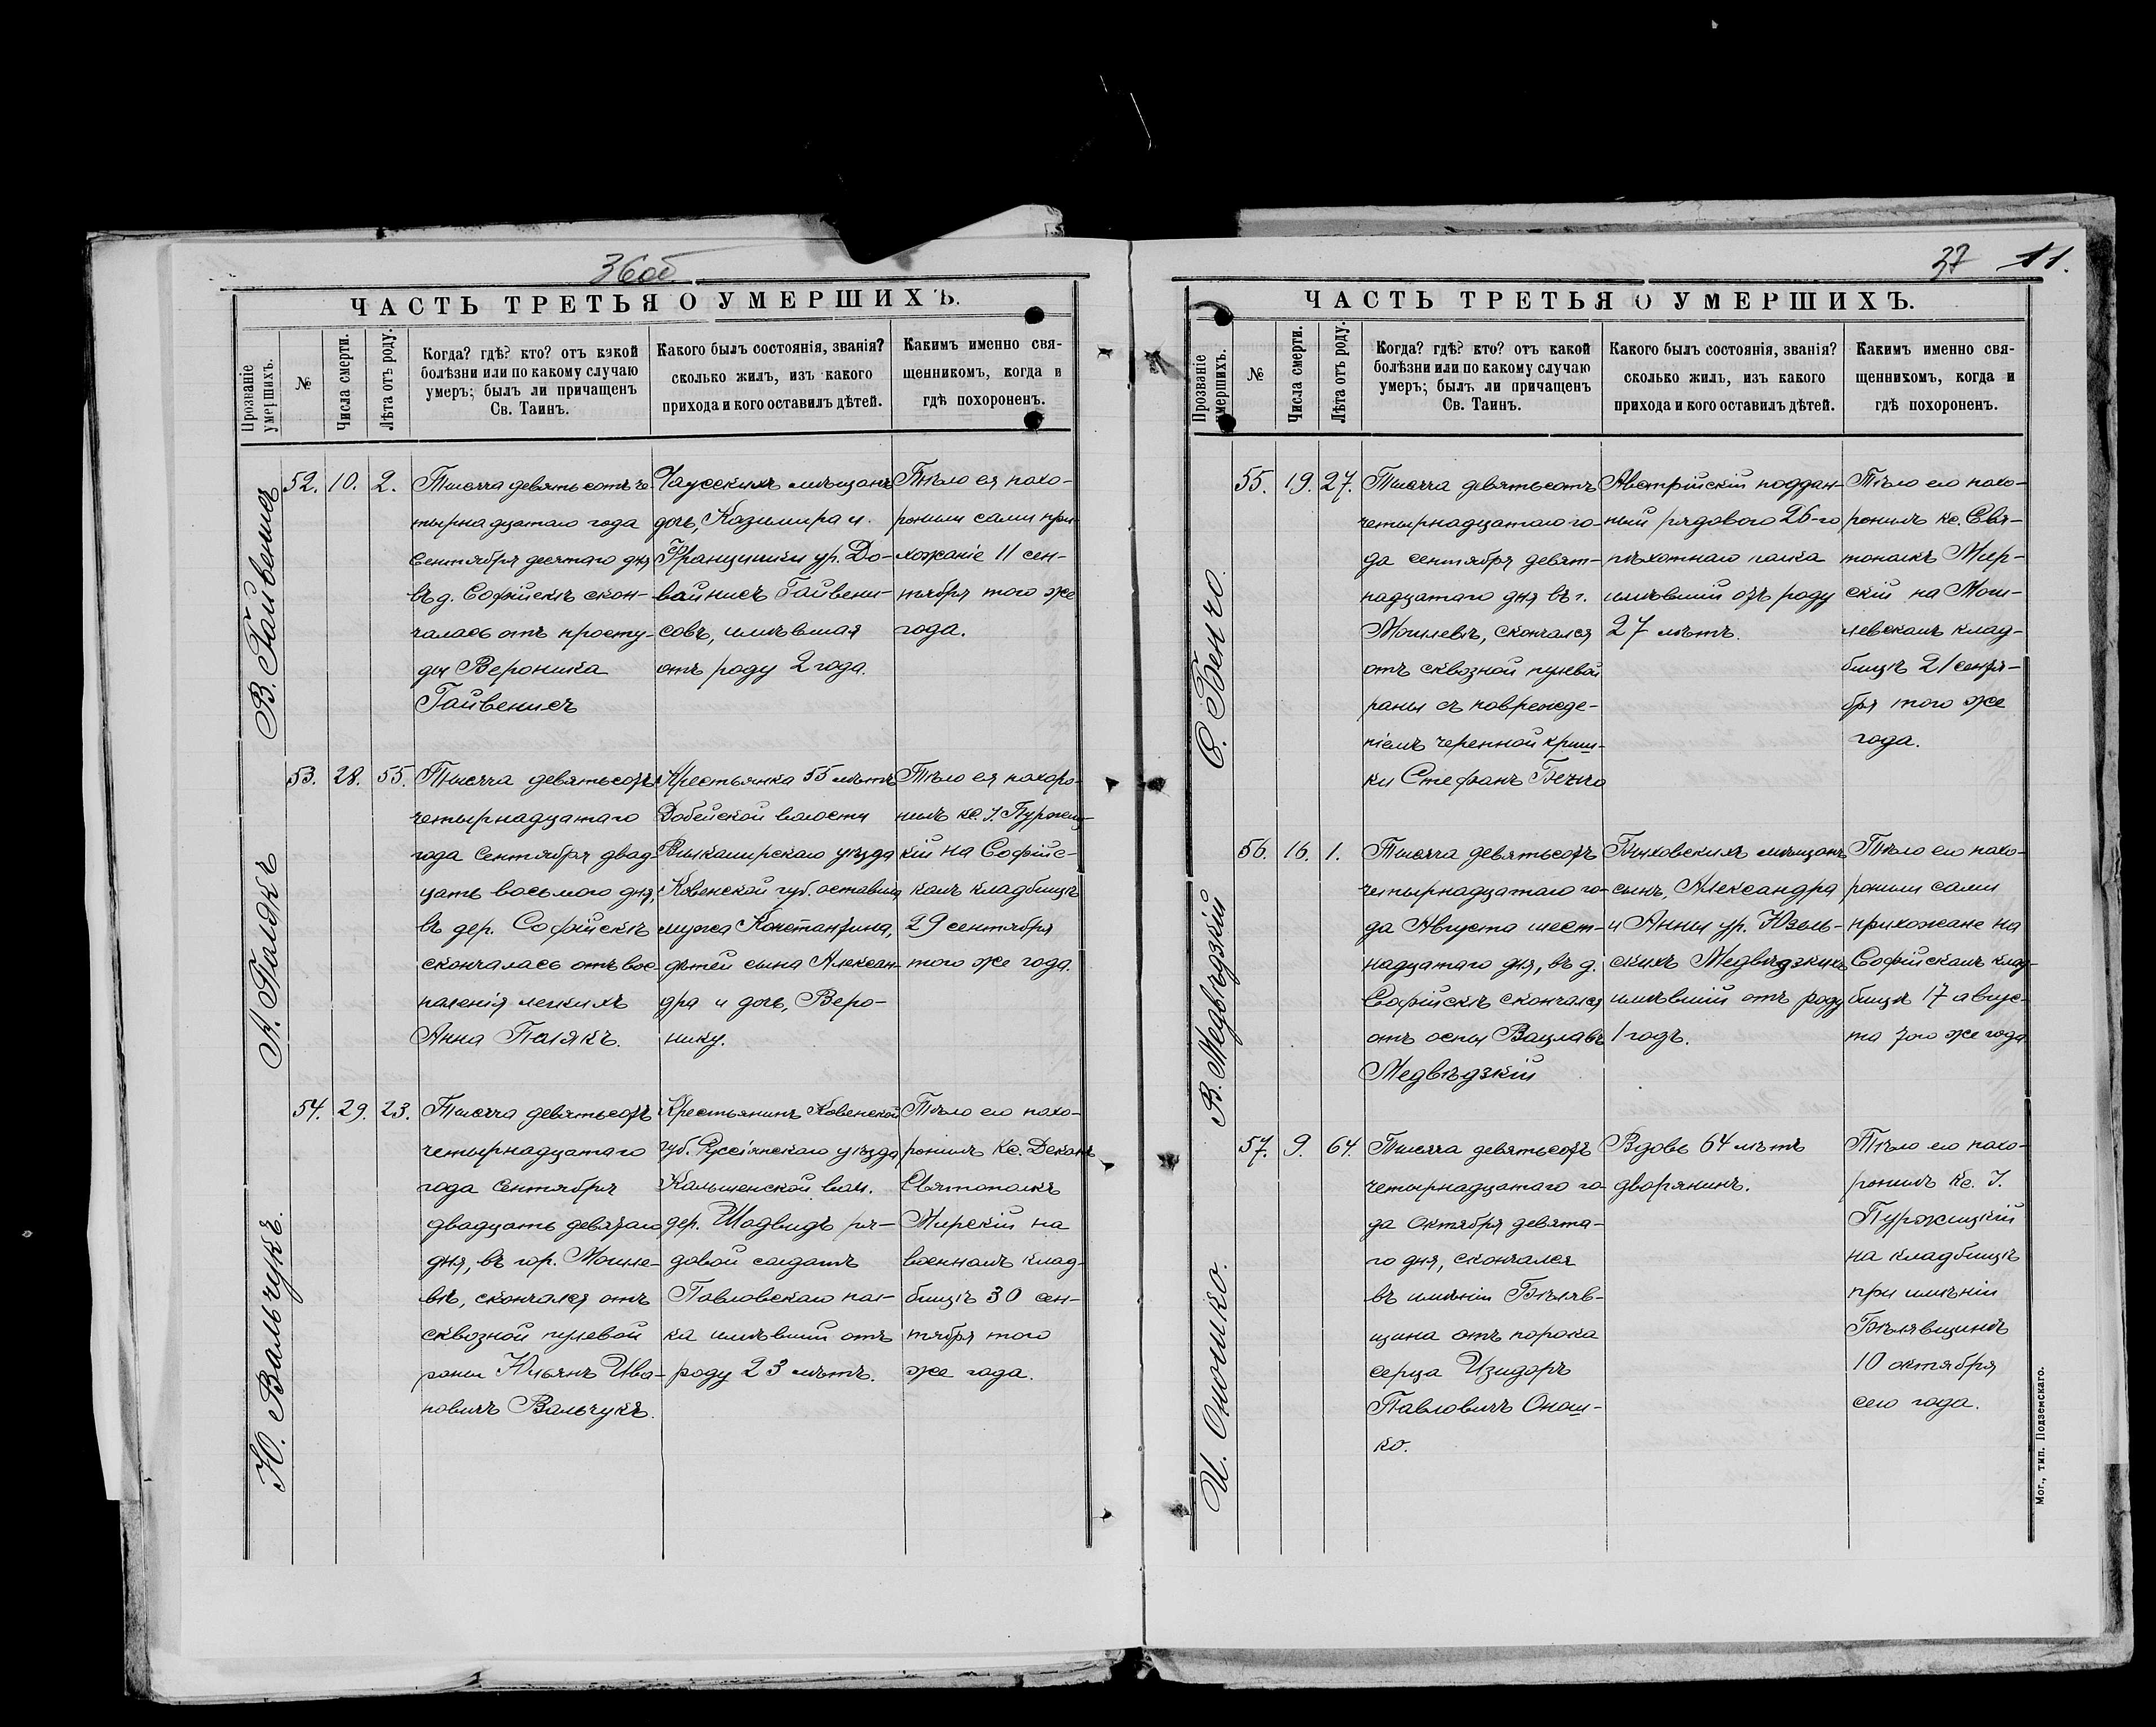 36об
ЧАСТЬ ТРЕТЬЯ О УМЕРШИХЪ.
Прозваніе умершихъ.
№
Числа смерти.
Лѣта отъ роду.
Когда? гдѣ? кто? отъ какой
болѣзни или по какому случаю
умеръ; былъ ли причащенъ
Св. Таинъ.
Какого былъ состоянія, званія?
сколько жилъ, изъ какого
прихода и кого оставилъ дѣтей.
Какимъ именно свя-
щенникомъ, когда и
гдѣ похороненъ.
В. Гайвенисъ
52.
10.
2.
Тысяча девятьсотъ че-
тырнадцатаго года
Сентября десятаго дня
въ д. Софійскѣ скон-
чалась отъ просту-
ды Вероника
Гайвенисъ
Чаусскихъ мѣщанъ
дочь, Казимира и
Францишки ур. До-
вайнисъ Гайвени-
совъ, имѣвшая
отъ роду 2 года.
Тѣло ея похо-
ронили сами при-
хожаніе 11 сен-
тября того же
года.
А. Полякъ
53.
28.
55.
Тысяча девятьсотъ
четырнадцатаго
года Сентября двад-
цать восьмого дня,
въ дер. Софійскѣ
скончалась отъ вос-
паленія легкихъ
Анна Полякъ.
Крестьянка 55 лѣтъ
Добейской волости
Вилкомирскаго уѣзда
Ковенской губ. оставила
мужа Константина,
дѣтей сына Алексан-
дра и дочь, Веро-
нику.
Тѣло ея похоро-
нилъ кс. І. Пуржиц-
кій на Софійс-
комъ кладбищѣ
29 сентября
того же года.
Ю. Вальчукъ.
54.
29.
23.
Тысяча девятьсотъ
четырнадцатаго
года Сентября
двадцать девятаго
дня, въ гор. Могиле-
вѣ, скончался отъ
сквозной пулевой
раны Юльянъ Ива-
новичъ Вальчукъ.
Крестьянинъ Ковенской
губ. Россіянскаго уѣзда
дер. Шадвидъ ря-
довой солдатъ
Павловскаго пол-
ка имѣвшій отъ
роду 23 лѣтъ.
Тѣло его похо-
ронилъ Кс. Деканъ
Святополкъ
Мирскій на
военномъ клад-
бищѣ 30 сен-
тября того
же года.
37
11.
ЧАСТЬ ТРЕТЬЯ О УМЕРШИХЪ.
Прозваніе умершихъ.
№
Числа смерти.
Лѣта отъ роду.
Когда? гдѣ? кто? отъ какой
болѣзни или по какому случаю
умеръ; былъ ли причащенъ
Св. Таинъ.
Какого былъ состоянія, званія?
сколько жилъ, изъ какого
прихода и кого оставилъ дѣтей.
Какимъ именно свя-
щенникомъ, когда и
гдѣ похороненъ.
С. Бенчо.
55.
19.
27.
Тысяча девятьсотъ
четырнадцатаго го-
да сентября девят-
надцатаго дня въ г.
Могилевѣ, скончался
отъ сквозной пулевой
раны съ поврежде-
ніемъ черепной крыш-
ки Стефанъ Бенчо
Австрійскій поддан-
ный рядового 26-го
пѣхотнаго полка
имѣвшій отъ роду
27 лѣтъ.
Тѣло его похо-
ронилъ кс. Свя-
тополкъ Мир-
скій на Моги-
левскомъ клад-
бищѣ 21 сентя-
бря того же
года.
В. Медвѣдзкій
56.
16.
1.
Тысяча девятьсотъ
четырнадцатаго го-
да Августа шест-
надцатаго дня, въ д.
Софійскѣ скончался
отъ оспы Вацлавъ
Медвѣдзкій
Быховскихъ мѣщанъ
сынъ, Александра
и Анны ур. Юзель-
скихъ Медвѣдзкихъ
имѣвшій отъ роду
1 годъ.
Тѣло его похо-
ронили сами
прихожане на
Софійскомъ клад-
бищѣ 17 авгус-
та того же года
И. Оношко.
57.
9.
64.
Тысяча девятьсотъ
четырнадцатаго го-
да Октября девята-
го дня, скончался
въ имѣніи Бѣляв-
щина отъ порока
серца Изидоръ
Павловичъ Онош-
ко.
Вдовъ 64 лѣтъ
дворянинъ.
Тѣло его похо-
ронилъ Кс. І.
Пуржицкій
на кладбищѣ
при имѣніи
Бѣлявщинѣ
10 октября
сего года.
Мог., тип. Подземскаго.